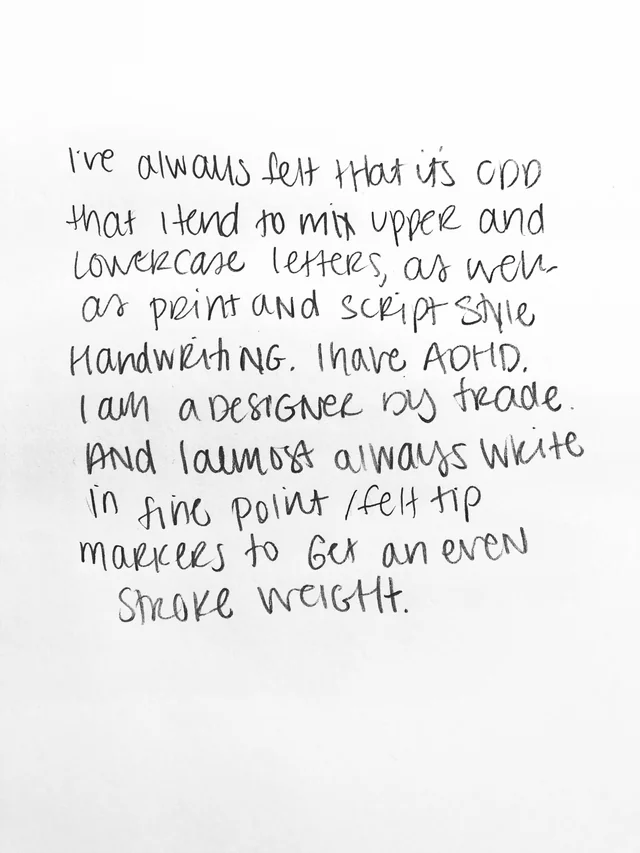 I've always felt that it's ODD
that I tend to mix upper and
LOWERCASE letters, as well
as print and script style
HandwritiNG. I have ADHD.
I am a DESIGNER by trade.
AND I almost always write
in fine point / felt tip
markers to Get an even
stroke weight.